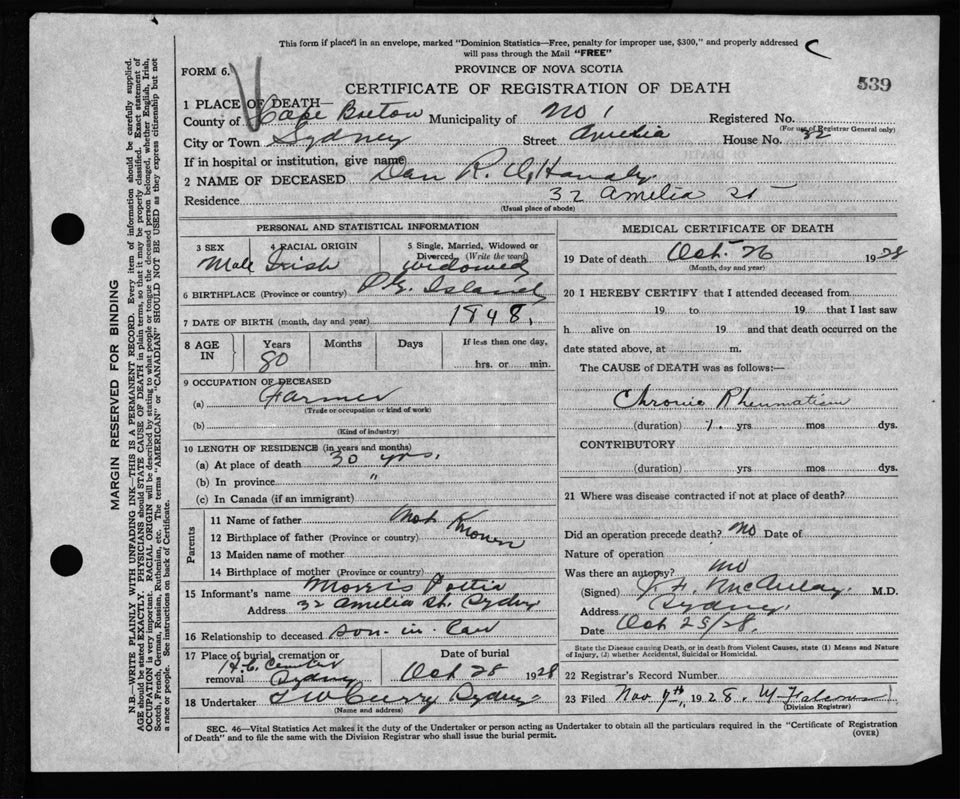 This form if placed in an envelope, marked "Dominion Statistics—Free, penalty for improper use, $300," and properly addressed
will pass through the Mail "FREE"
FORM 6.
PROVINCE OF NOVA SCOTIA
539
CERTIFICATE OF REGISTRATION OF DEATH
1 PLACE OF DEATH—
County of Cape Breton Municipality of No 1 Registered No.
(For use of Registrar General only)
City or Town Sydney Street Amelia House No. 32
If in hospital or institution, give name
2 NAME OF DECEASED Dan R. O'Handly
Residence 32 Amelia St
(Usual place of abode)
PERSONAL AND STATISTICAL INFORMATION
3 SEX 4 RACIAL ORIGIN 5 Single, Married, Widowed or
Divorced (Write the word)
Male Irish Widowed
6 BIRTHPLACE (Province or country) P.E. Island
7 DATE OF BIRTH (month, day and year) 1848.
8 AGE IN Years Months Days If less than one day,
80 hrs. or min.
9 OCCUPATION OF DECEASED
(a) Farmer
(Trade or occupation or kind of work)
(b)
(Kind of industry)
10 LENGTH OF RESIDENCE (in years and months)
(a) At place of death 30 yrs.
(b) In province "
(c) In Canada (if an immigrant)
Parents
11 Name of father Not Known
12 Birthplace of father (Province or country)
13 Maiden name of mother
14 Birthplace of mother (Province or country)
15 Informant's name Morris
Address 32 Amelia St. Sydney
16 Relationship to deceased Son-in-law
17 Place of burial, cremation or
removal Sydney
Date of burial
Oct 28 1928
18 Undertaker Curry Sydney
(Name and address)
MEDICAL CERTIFICATE OF DEATH
19 Date of death Oct. 26 1928
(Month, day and year)
20 I HEREBY CERTIFY that I attended deceased from
19 to 19 that I last saw
h alive on 19 and that death occurred on the
date stated above, at m.
The CAUSE of DEATH was as follows:—
Chronic Rheumatism
(duration) 7. yrs mos dys.
CONTRIBUTORY
(duration) yrs mos dys.
21 Where was disease contracted if not at place of death?
Did an operation precede death? No Date of
Nature of operation
Was there an autopsy? No
(Signed) McAulay. M.D.
Address Sydney.
Date Oct 25/28.
State the Disease causing Death, or in death from Violent Causes, state (1) Means and Nature
of Injury, (2) whether Accidental, Suicidal or Homicidal.
22 Registrar's Record Number
23 Filed Nov 7th, 1928.
(Division Registrar)
SEC. 46—Vital Statistics Act makes it the duty of the Undertaker or person acting as Undertaker to obtain all the particulars required in the "Certificate of Registration
of Death" and to file the same with the Division Registrar who shall issue the burial permit.
(OVER)
MARGIN RESERVED FOR BINDING
N.B.—WRITE PLAINLY WITH UNFADING INK—THIS IS A PERMANENT RECORD. Every item of information should be carefully supplied.
AGE should be stated EXACTLY. PHYSICIANS should STATE CAUSE OF DEATH in plain terms, so that it may be properly classified. Exact statement of
OCCUPATION is very important. RACIAL ORIGIN will be described by stating to what people or tongue the deceased person belonged, whether English, Irish,
Scotch, French, German, Russian, Ruthenian, etc. The terms "AMERICAN" or "CANADIAN" SHOULD NOT BE USED as they express citizenship but not
a race or people. See instructions on back of Certificate.